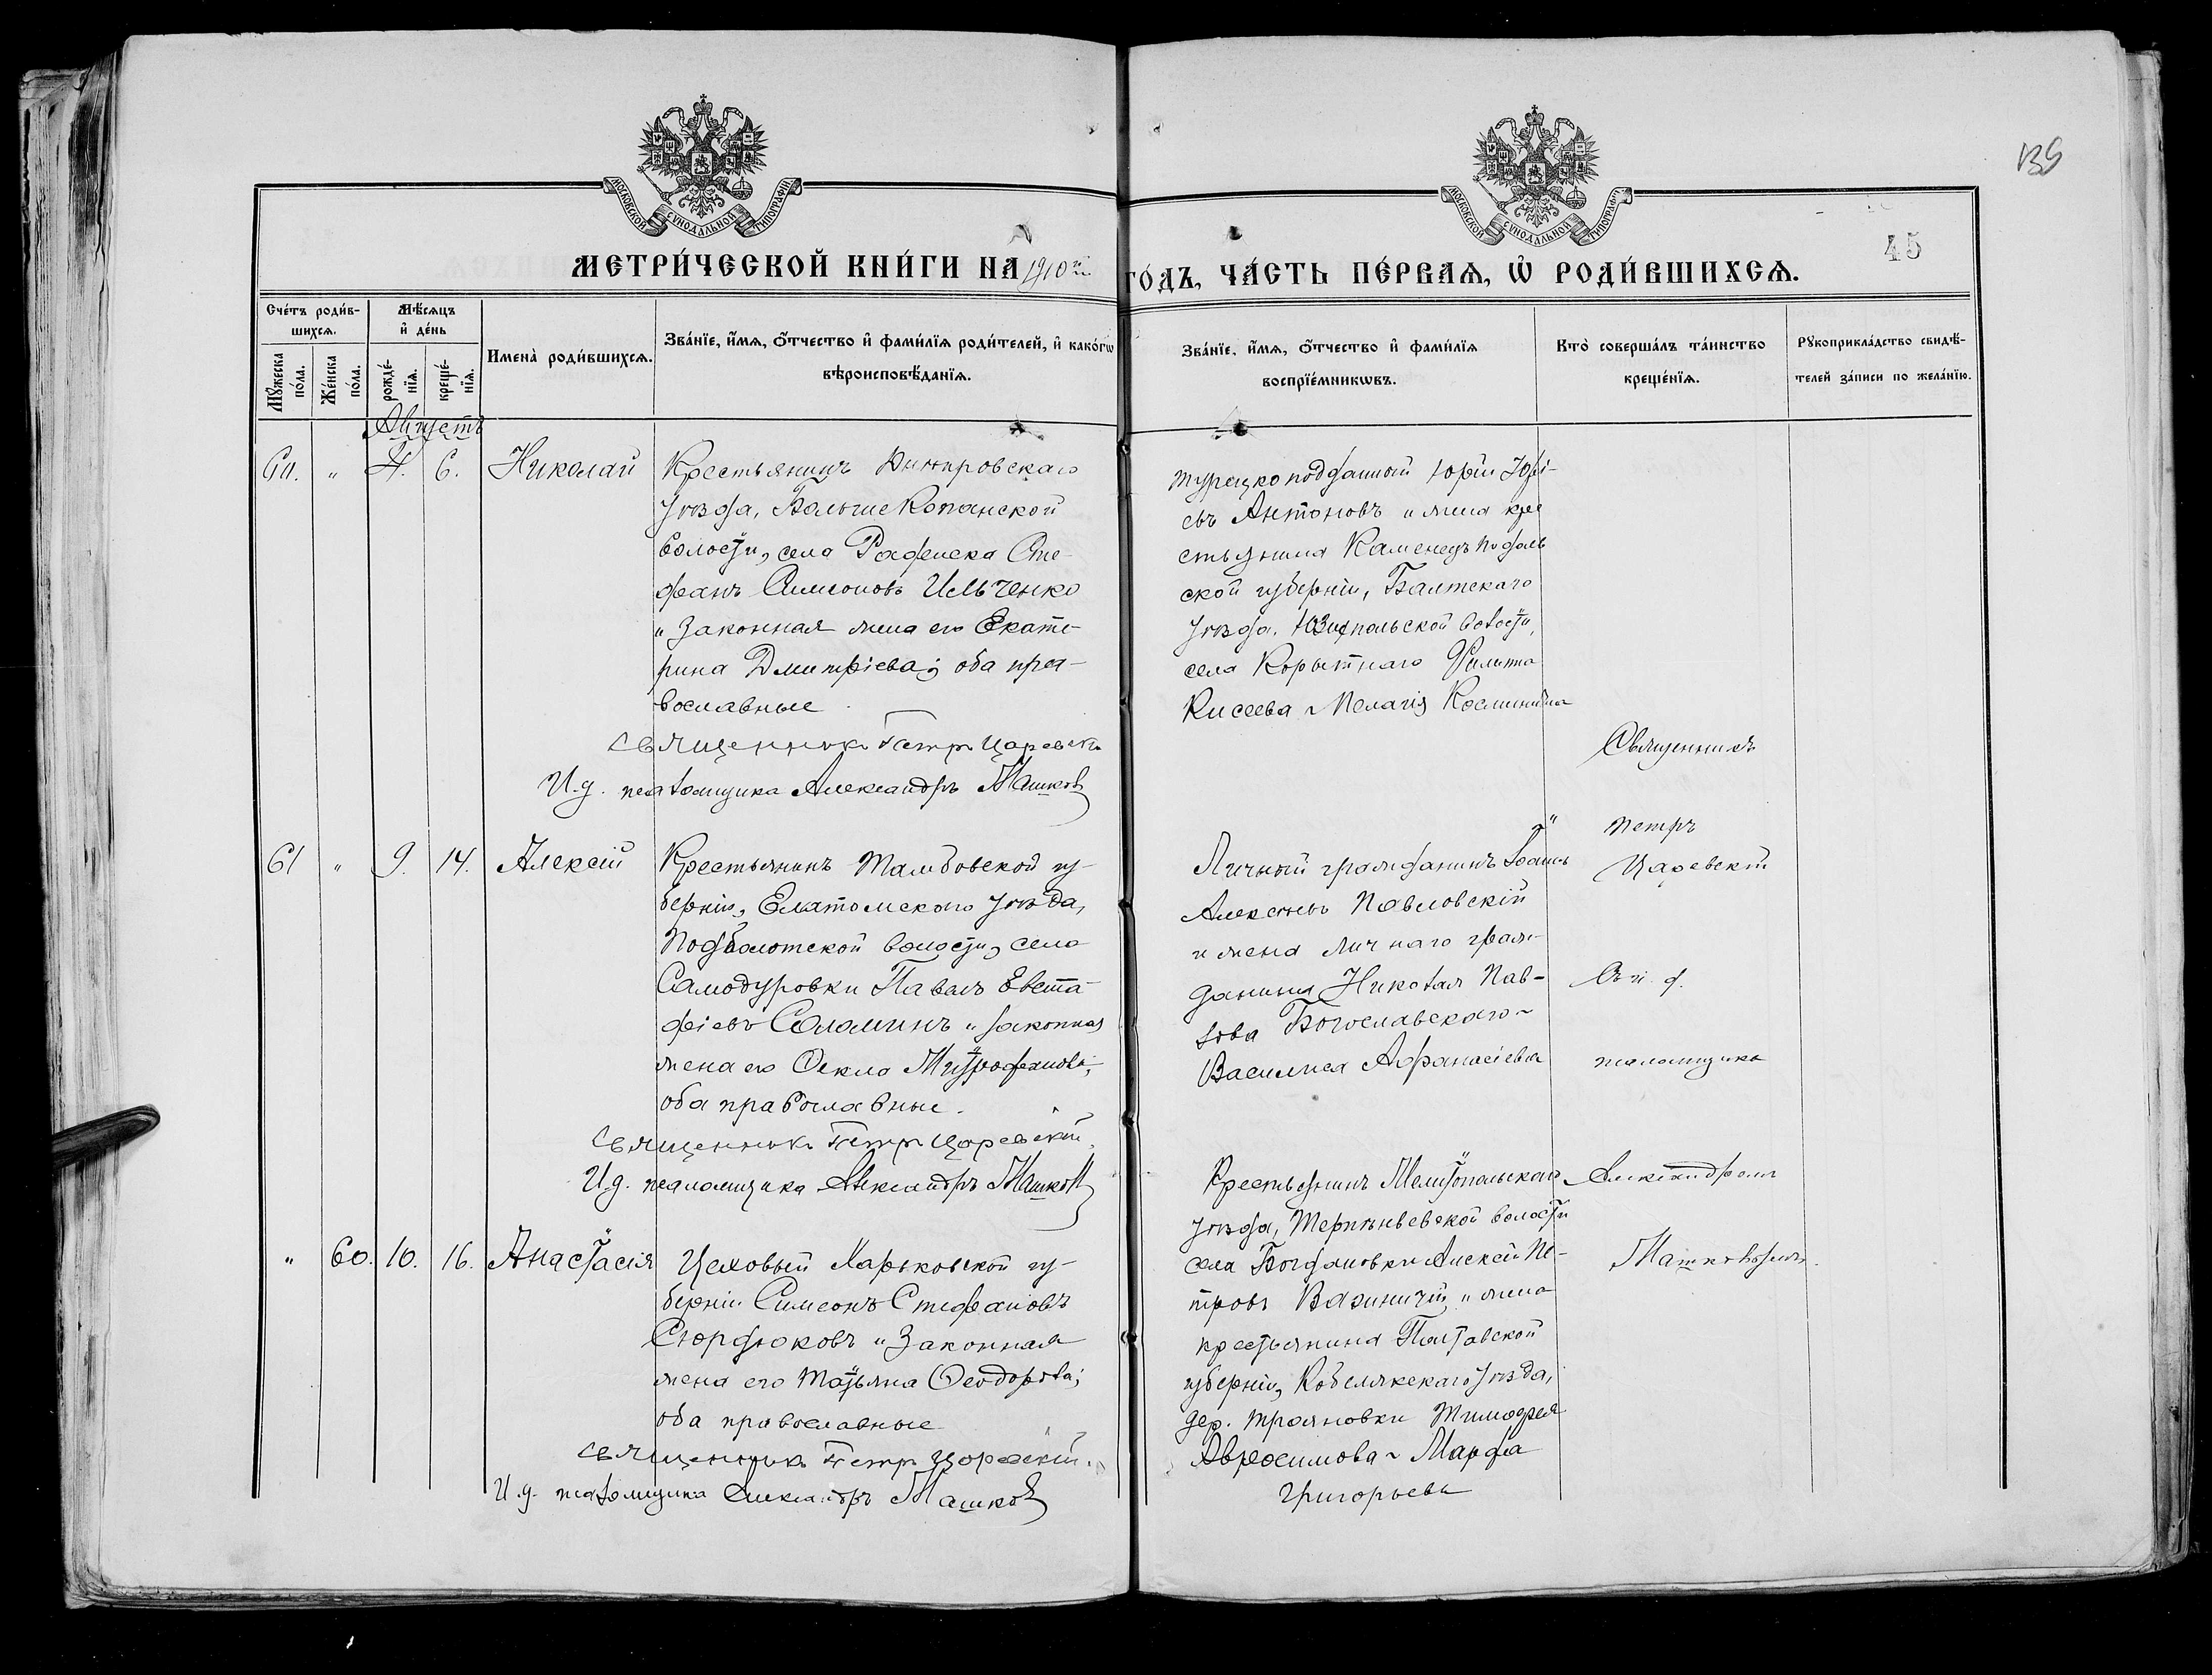 139
45
МОСКОВСКОЙ СѴНОДАЛЬНОЙ ТИПОГРАФІИ
МОСКОВСКОЙ СѴНОДАЛЬНОЙ ТИПОГРАФІИ
МЕТРИ́ЧЕСКОЙ КНИ́ГИ НА 1910й
ГО́ДЪ, ЧА́СТЬ ПЕ́РВАѦ, Ѡ҆ РОДИ́ВШИХСѦ.
Сче́тъ роди́в-
шихсѧ.
Мꙋ́жеска по́ла.
Же́нска по́ла.
Мѣ́сѧцъ
и҆ де́нь
рожде́-
нїѧ.
креще́-
нїѧ.
Имена̀ роди́вшихсѧ.
Зва́нїе, и҆́мѧ, ѻ҆́тчество и҆ фами́лїѧ роди́телей, и҆ како́гѡ
вѣроисповѣ́данїѧ.
Зва́нїе, и҆́мѧ, ѻ҆́тчество и҆ фами́лїѧ
воспрїе́мникѡвъ.
Кто̀ соверша́лъ та́инство
креще́нїѧ.
Рꙋкоприкла́дство свидѣ́-
телей за́писи по жела́нїю.
Августъ
60. " 4. 6. Николай
Крестьянинъ Днѣпровскаго
уѣзда, Больше Копанской
волости, села Раденска Сте-
фанъ Симеоновъ Ильченко
и законная жена его Екате-
рина Дмитріева; оба пра-
вославные
Священникъ Петръ Царевскій
И.д. псаломщика Александръ Машковъ
турецкоподданный Юрій Юрі-
евъ Антоновъ и жена кре
стьянина Каменецъ Подоль
ской губерніи, Балтскаго
уѣзда, Юзефпольской волости,
села Корытнаго Филиппа
Кисеева Пелагія Космина
61 " 9. 14. Алексій
Крестьянинъ Тамбовской гу-
берніи, Елатомскаго уѣзда,
Подболотской волости, села
Самодуровки Павелъ Евста-
фіевъ Соломинъ и законная
жена его Ѳекла Митрофанова;
оба православные.
Священникъ Петръ Царевскій.
И.д. псаломщика Александръ Машковъ
Личный гражданинъ Іоаннъ
Алексѣевъ Павловскій
и жена личнаго граж-
данина Николая Пав-
лова Богославскаго
Василиса Афанасіевна
" 60. 10. 16. Анастасія
Цеховый Харьковской гу-
берніи Симеонъ Стефановъ
Сюрдюковъ и законная
жена его Татьяна Ѳеодорова;
оба православные
Священникъ Петръ Царевскій.
И.д. псаломщика Александръ Машковъ
Крестьянинъ Мелитопольскаго
уѣзда, Терпѣньевской волости
села Богдановки Алексѣй Пе-
тровъ и жена
крестьянина Полтавской
губерніи, Кобелякскаго уѣзда,
дер. Трояновки Тимофея
Авросимова Марфа
Григорьева
Священникъ
Петръ
Царевскій
съ и. д.
псаломщика
Александромъ
Машковымъ.